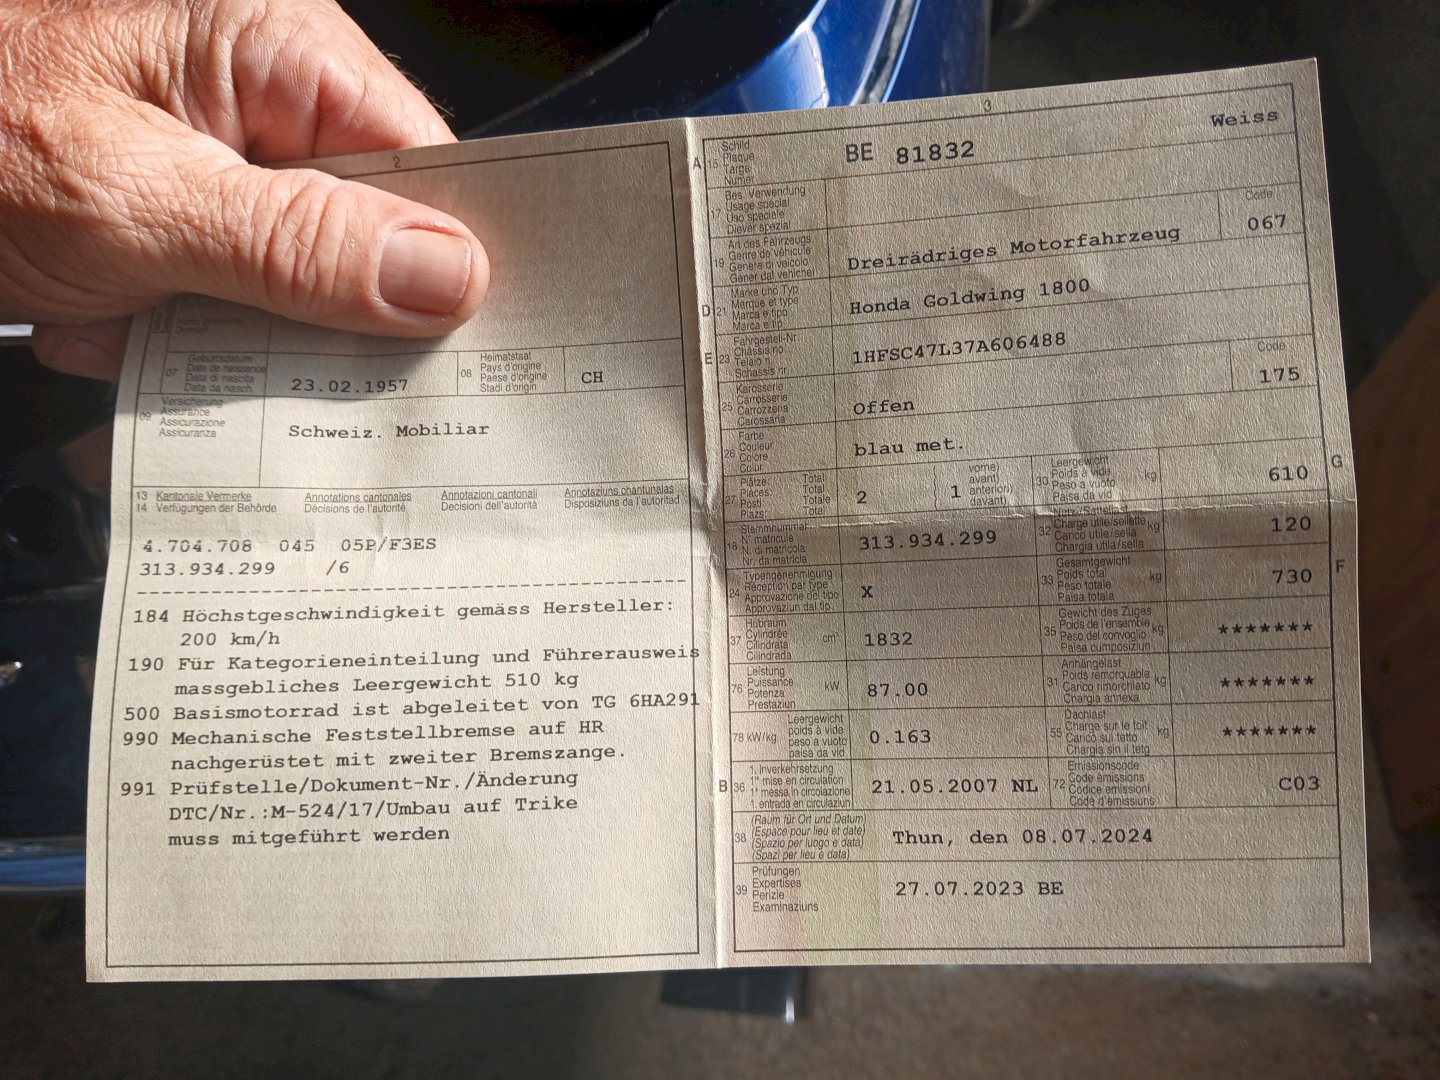 2
07 Geburtsdatum
Date de naissance
Data di nascita
Data da nasch.
23.02.1957
08 Heimatstaat
Pays d'origine
Paese d'origine
Stadi d'origin
CH
09 Versicherung
Assurance
Assicurazione
Assicuranza
Schweiz. Mobiliar
13 Kantonale Vermerke Annotations cantonales Annotazioni cantonali Annotaziuns chantunalas
14 Verfügungen der Behörde Décisions de l'autorité Decisioni dell'autorità Disposiziuns da l'autoritad
4.704.708 045 05P/F3ES
313.934.299 /6
184 Höchstgeschwindigkeit gemäss Hersteller:
200 km/h
190 Für Kategorieneinteilung und Führerausweis
massgebliches Leergewicht 510 kg
500 Basismotorrad ist abgeleitet von TG 6HA291
990 Mechanische Feststellbremse auf HR
nachgerüstet mit zweiter Bremszange.
991 Prüfstelle/Dokument-Nr./Änderung
DTC/Nr.:M-524/17/Umbau auf Trike
muss mitgeführt werden
3
A 15 Schild
Plaque
Targa
Numer
BE 81832 Weiss
17 Bes. Verwendung
Usage spécial
Uso speciale
Diever spezial
19 Art des Fahrzeugs
Genre de véhicule
Genere di veicolo
Gener dal vehichel
Dreirädriges Motorfahrzeug
Code
067
D 21 Marke und Typ
Marque et type
Marca e tipo
Marca e tip
Honda Goldwing 1800
E 23 Fahrgestell-Nr.
Châssis no
Telaio n.
Schassis nr.
1HFSC47L37A606488
25 Karosserie
Carrosserie
Carrozzeria
Carossaria
Offen
Code
175
26 Farbe
Couleur
Colore
Colur
blau met.
27 Plätze: Total
Places: Total
Posti: Totale
Plazs: Total
2
1
vorne)
avant)
anteriori)
davant)
30 Leergewicht
Poids à vide
Peso a vuoto
Paisa da vid
kg
610
G
18 Stammnummer
N° matricule
N. di matricola
Nr. da matricla
313.934.299
32 Nutz-/Sattellast
Charge utile/sellette
Carico utile/sella
Chargia utila/sella
kg
120
24 Typengenehmigung
Réception par type
Approvazione del tipo
Approvaziun dal tip
X
33 Gesamtgewicht
Poids total
Peso totale
Paisa totala
kg
730
F
37 Hubraum
Cylindrée
Cilindrata
Cilindrada
cm³
1832
35 Gewicht des Zuges
Poids de l'ensemble
Peso del convoglio
Paisa cumposiziun
kg
*******
76 Leistung
Puissance
Potenza
Prestaziun
kW
87.00
31 Anhängelast
Poids remorquable
Carico rimorchiato
Chargia annexa
kg
*******
78 kW/kg Leergewicht
poids à vide
peso a vuoto
paisa da vid
0.163
55 Dachlast
Charge sur le toit
Carico sul tetto
Chargia sin il tetg
kg
*******
B 36 1. Inverkehrsetzung
1re mise en circulation
1a messa in circolazione
1. entrada en circulaziun
21.05.2007 NL
72 Emissionscode
Code émissions
Codice emissioni
Code d'emissiuns
C03
38 (Raum für Ort und Datum)
(Espace pour lieu et date)
(Spazio per luogo e data)
(Spazi per lieu e data)
Thun, den 08.07.2024
39 Prüfungen
Expertises
Perizie
Examinaziuns
27.07.2023 BE